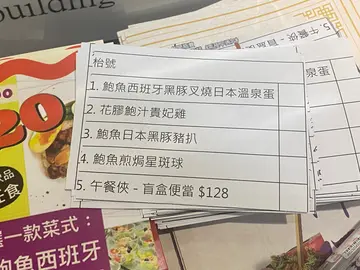 building
5. 午餐俠 - 盲盒
枱號
1. 鮑魚西班牙黑豚叉燒日本溫泉蛋
蛋
2. 花膠鮑汁貴妃雞
3. 鮑魚日本黑豚豬扒
4. 鮑魚煎焗星斑球
5. 午餐俠 - 盲盒便當 $128
20
一款菜式：
鮑魚西班牙